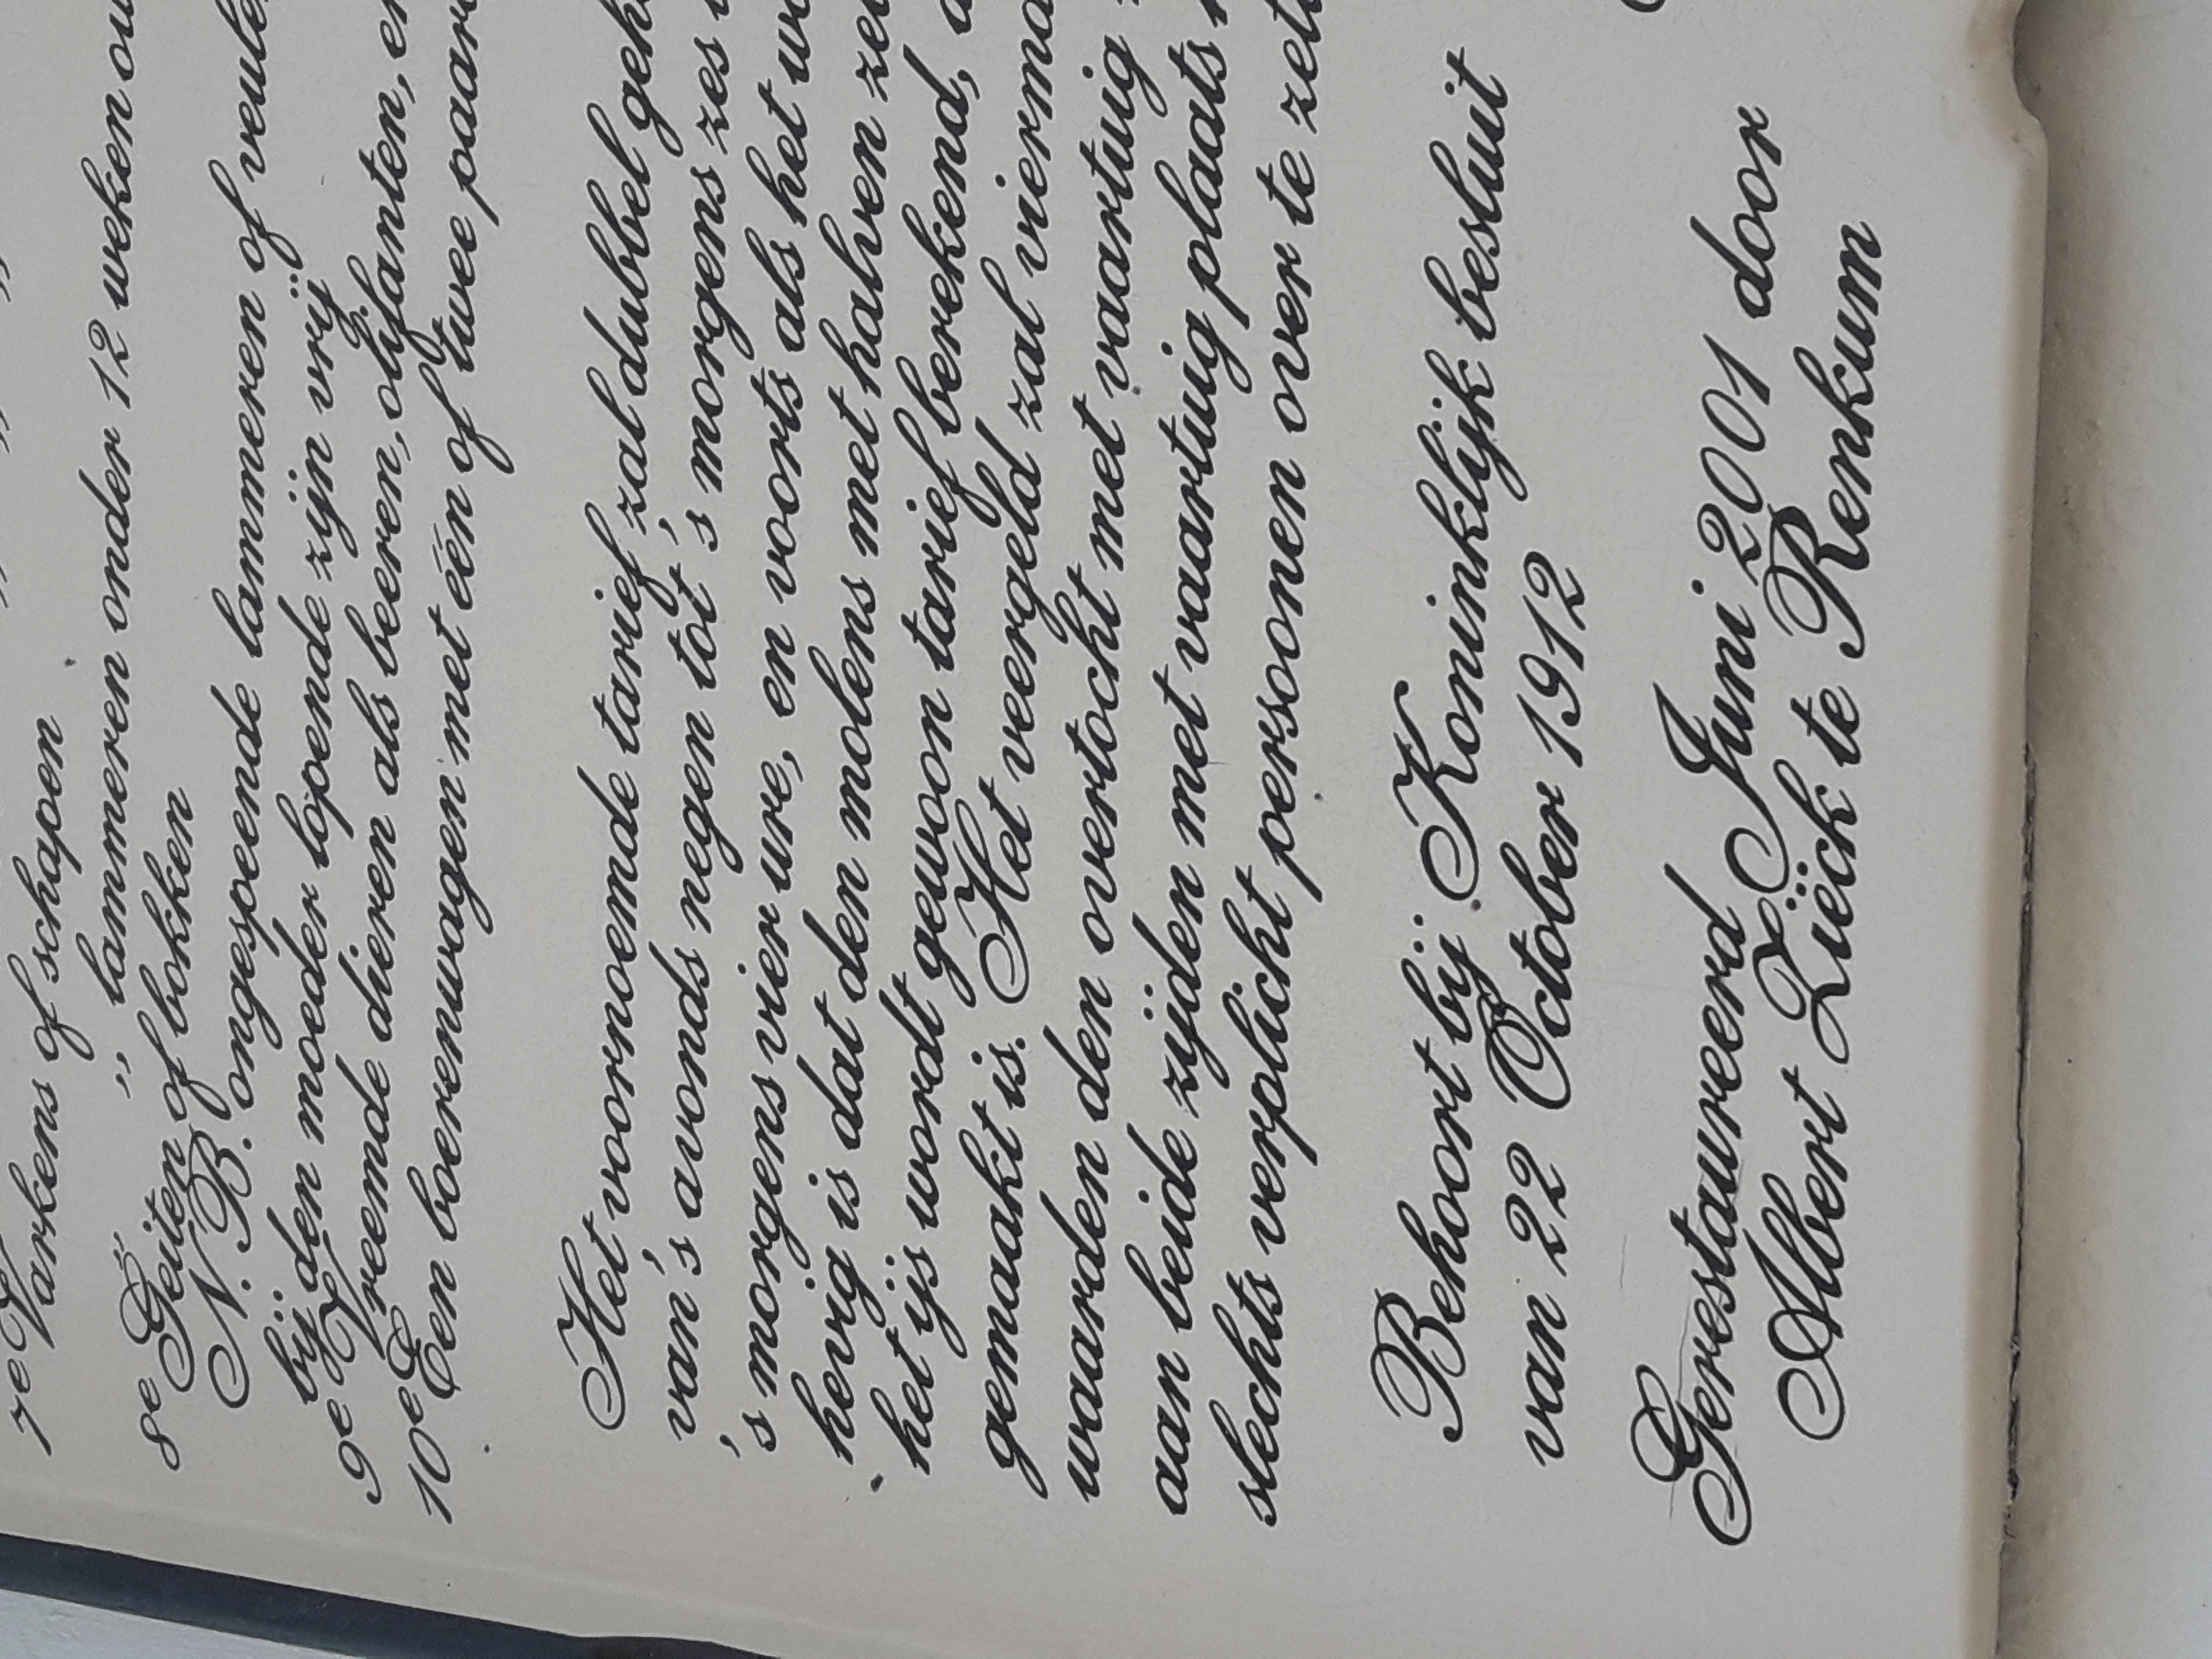 7e Varkens of schapen
" lammeren onder 12 weken
8e Geiten of bokken
N.B. ongespeende lammeren of
bij den moeder lopende zijn vrij
9e Vreemde dieren als beeren, olifanten,
10e Een boerenwagen met één of twee
Het voornoemde tarief zal dubbel
van 's avonds negen tot 's morgens zes
's morgens vier ure, en voorts als het
hevig is dat den molens met halven
het ijs wordt gewoon tarief berekend,
gemaakt is. Het veergeld zal
waarden den overtocht met vaartuig
aan beide zijden met vaartuig plaats
slechts verplicht persoonen over te
Behoort bij Koninklijk besluit
van 22 October 1912
Gerestaureerd Juni 2001 door
Albert Ziëck te Renkum